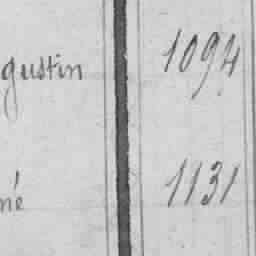 gustin 1094
né 1131